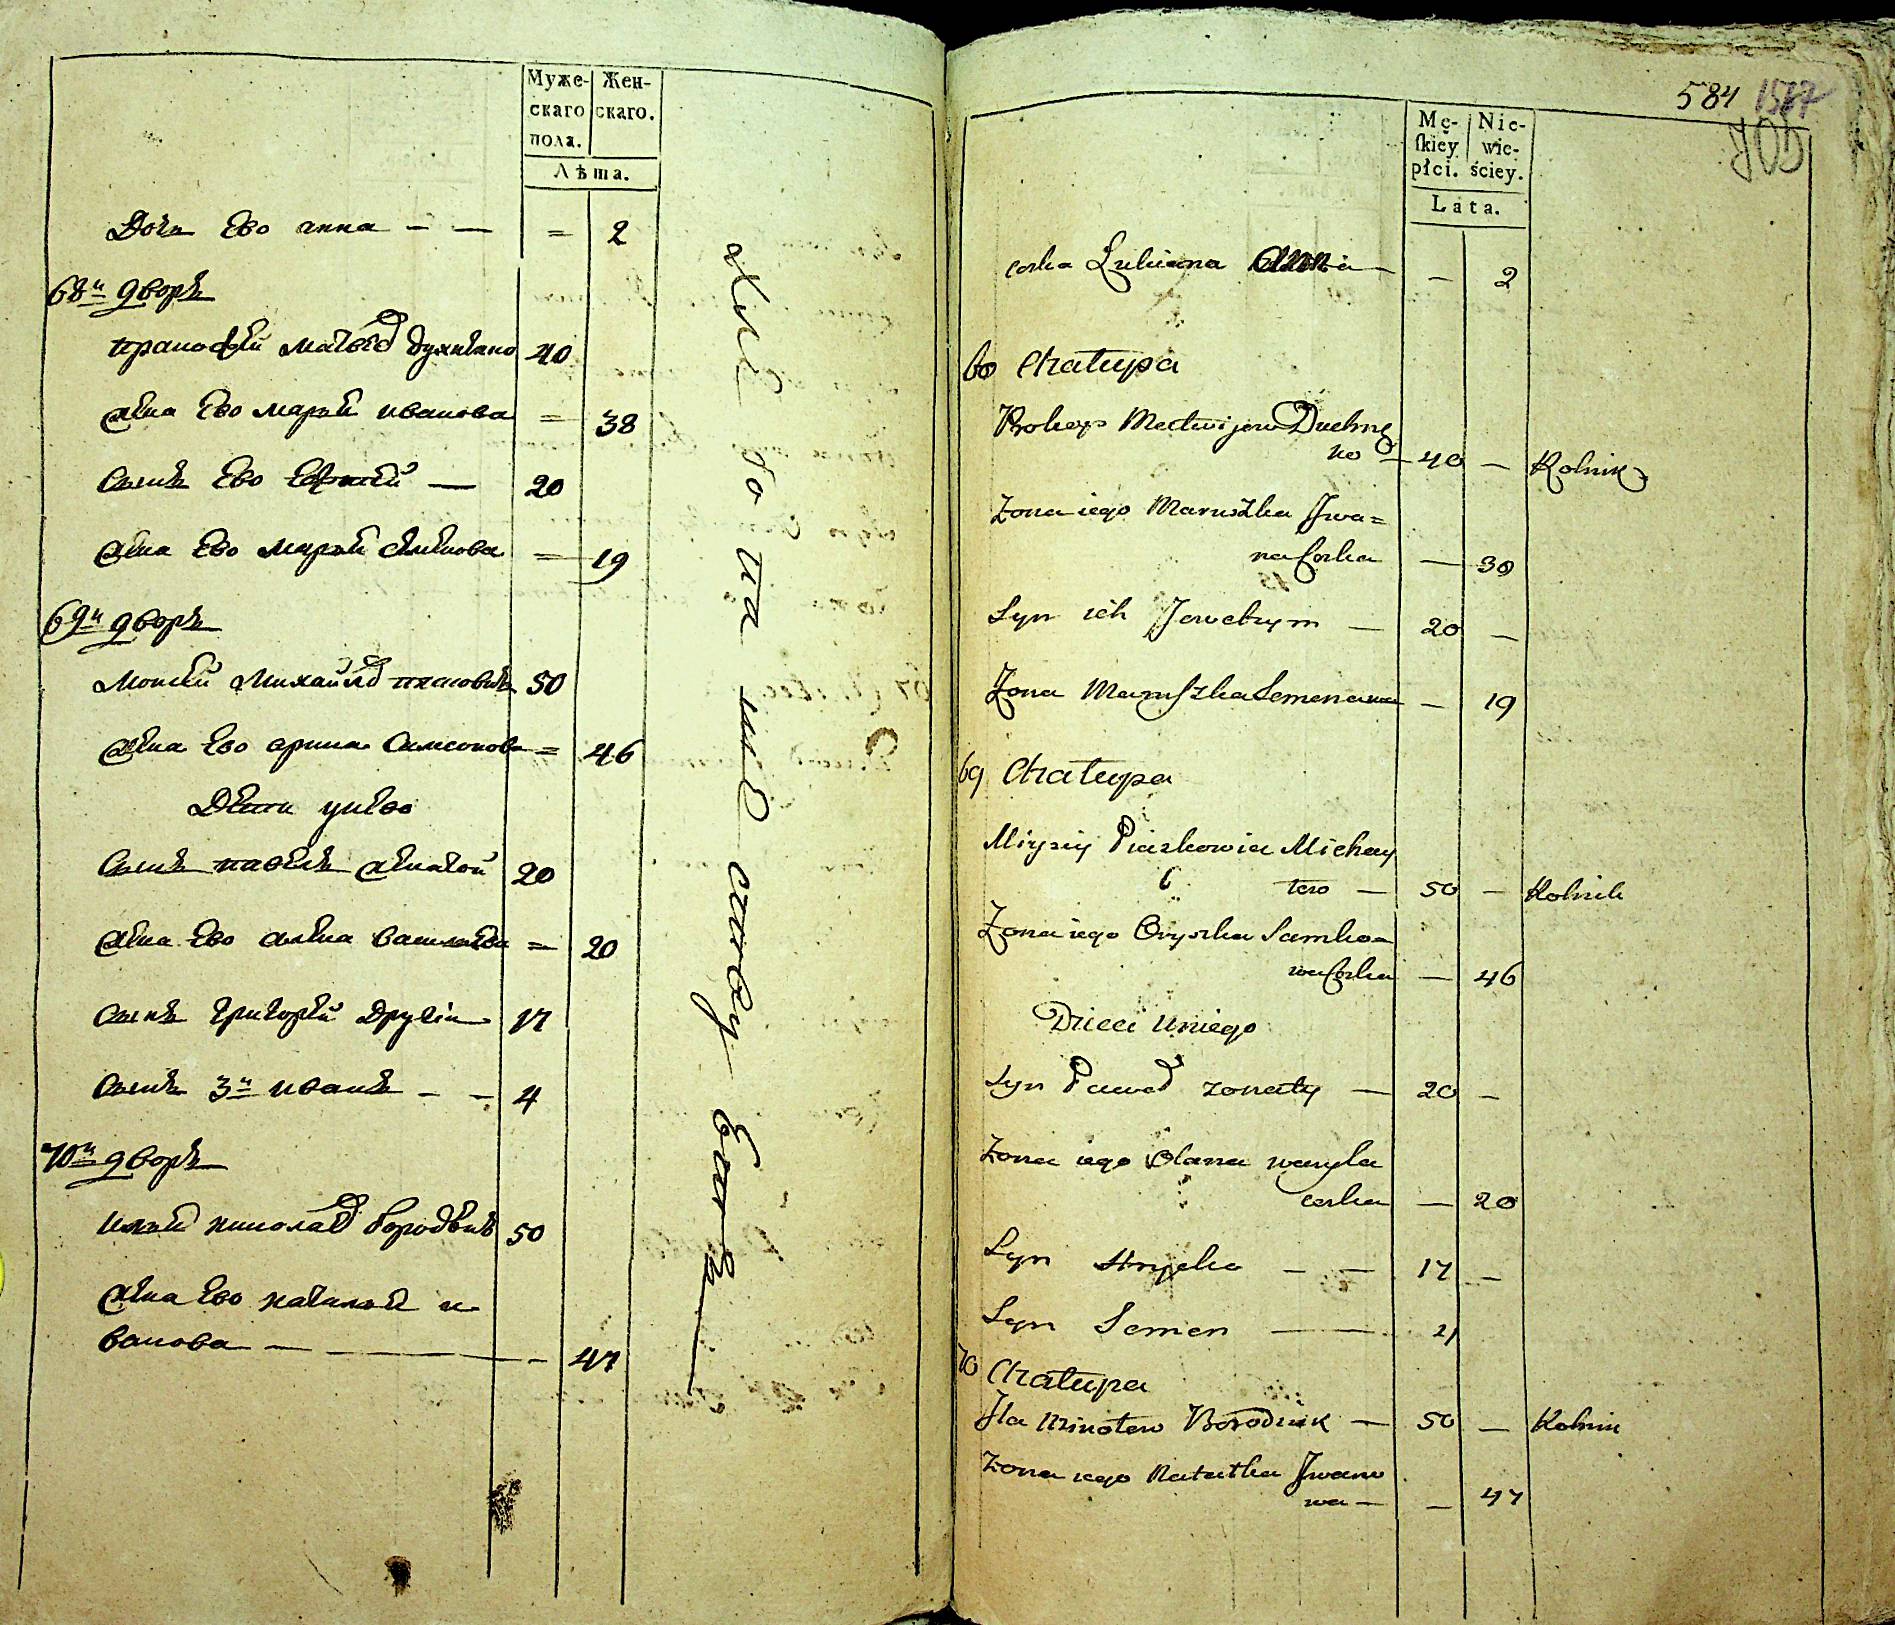 Муже-
скаго
пола.
Жен-
скаго.
Лѣта.
Дочь Ево анна — — = 2
68й дворъ
прокофей матвеев духнано 40
жена Ево марья иванова = 38
Сынъ Ево — 20
жена Ево марья семенова = 19
69й дворъ
Моисей Михайлов 50
жена Ево орина Самсонова = 46
Дети унево
Сынъ павелъ женатой 20
жена Ево алена васильева = 20
Сынъ григорей другiй 17
Сынъ 3й иванъ — — 4
70й дворъ
Илья николаев бородѣнъ 50
жена Ево наталья и
ванова — — 47
584 1587
705
Mę-
ſkiey
płci.
Nie-
wie-
ściey.
Lata.
corka Lukiana — — 2
68 Chałupa
Prokop Matwijow Duchne
no — 40 — Rolnik
Zona iego Maruszka Jwa=
na Corka — 38
Syn ich — 20 —
Zona Maruszka Semenowa — 19
69 Chałupa
Miysiy Piaskowia Michay
low — 50 — Rolnik
Zona iego Oryszka Samko=
wa Corka — 46
Dzieci Uniego
Syn Paweł zonaty — 20 —
Zona iego Olana wasyla
corka — 20
Syn Hryćko — — 17 —
Syn Semen — 4
70 Chałupa
Jla Borodink — 50 — Rolnik
Zona iego Natałka Jwano
wa — — 47